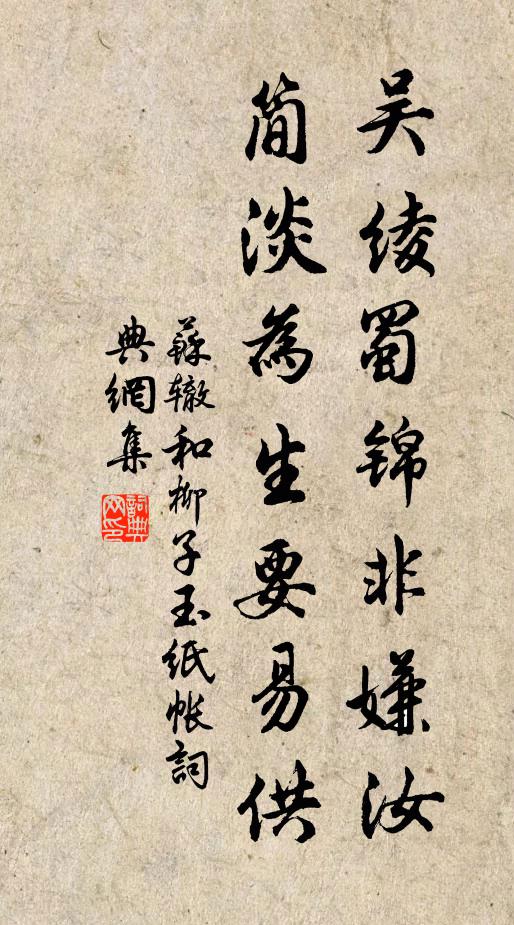 吴绫蜀锦非嫌汝
简淡為生要易供
蘇辙和柳子玉紙帐詞
典網集
詞典網印